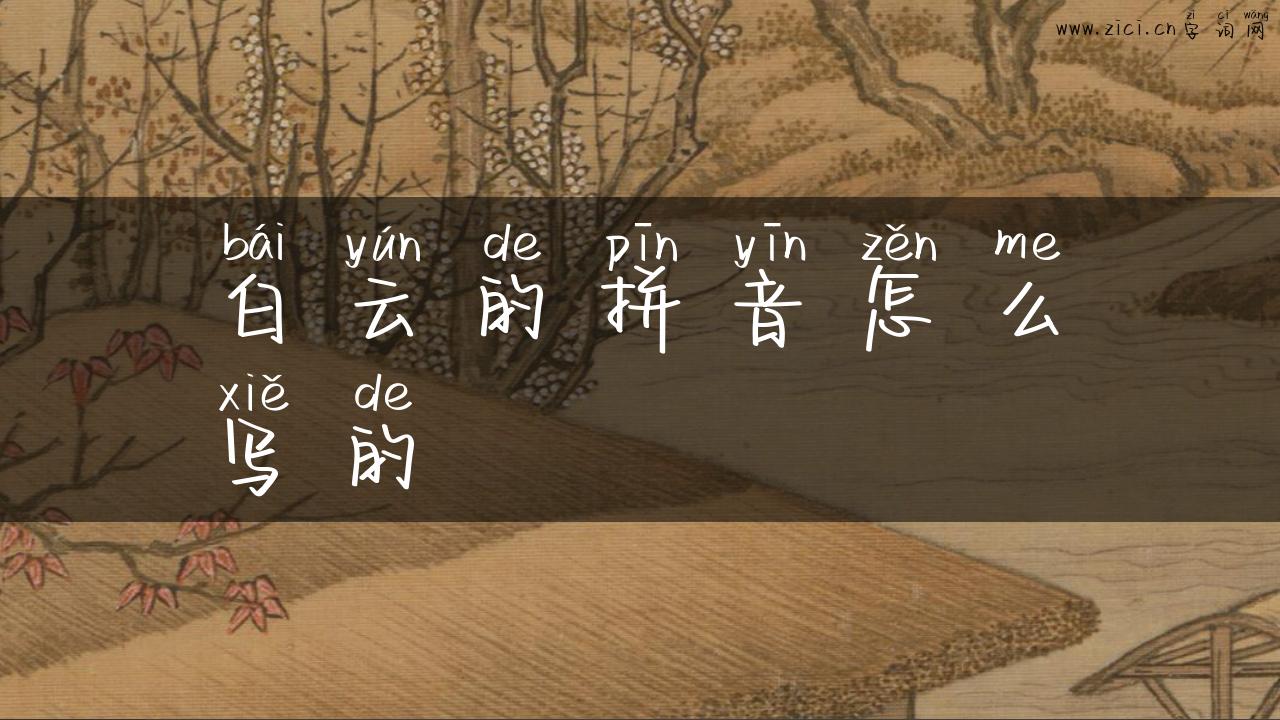 zì cí wǎng
www.zici.cn 字词网
bái yún de pīn yīn zěn me
白云的拼音怎么
xiě de
写的